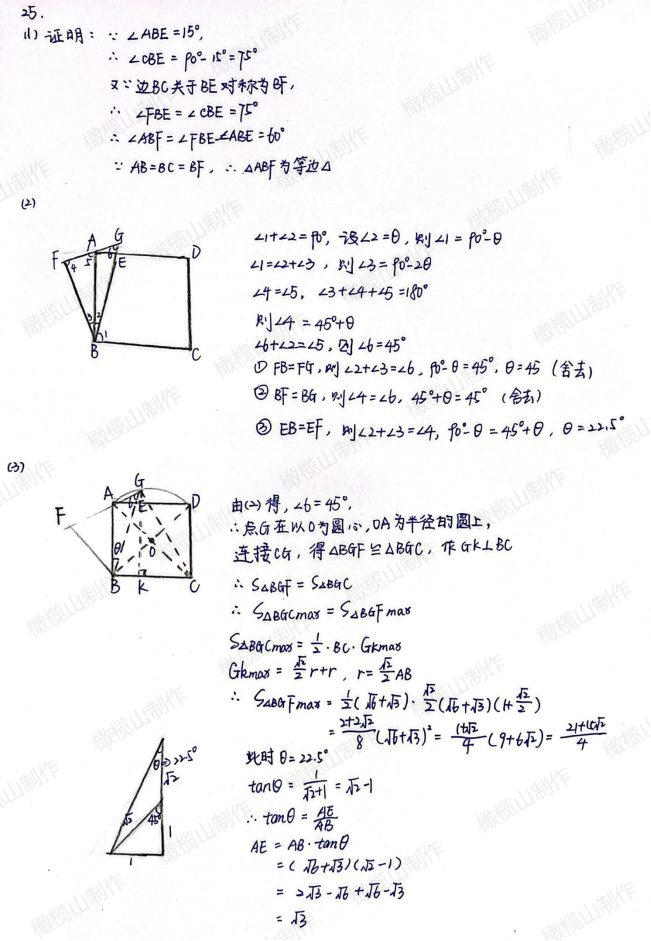 25.
(1) 证明: ∵ ∠ABE=15°,
∴ ∠CBE = 90°-15°=75°
又∵ 边BC关于BE对称为BF,
∴ ∠FBE = ∠CBE = 75°
∴ ∠ABF = ∠FBE-∠ABE = 60°
∵ AB=BC=BF, ∴ △ABF为等边△
(2)
A G D
F 4 5 6 E
3 2
B 1 C
∠1+∠2=90°, 设∠2=θ, 则∠1=90°-θ
∠1=∠2+∠3, 则∠3=90°-2θ
∠4=∠5, ∠3+∠4+∠5=180°
则∠4=45°+θ
∠6+∠2=∠5, 因∠6=45°
① FB=FG, 则∠2+∠3=∠6, 90°-θ=45°, θ=45 (舍去)
② BF=BG, 则∠4=∠6, 45°+θ=45° (舍去)
③ EB=EF, 则∠2+∠3=∠4, 90°-θ=45°+θ, θ=22.5°
(3)
G
A 6 E D
F
θ O
B K C
由(2)得, ∠6=45°,
∴点G在以O为圆心, OA为半径的圆上,
连接CG, 得△BGF≌△BGC, 作GK⊥BC
∴ S△BGF = S△BGC
∴ S△BGCmax = S△BGFmax
S△BGCmax = 1/2·BC·GKmax
GKmax = √2/2 r+r, r=√2/2 AB
∴ S△BGFmax = 1/2(√6+√3)·√2/2(√6+√3)(1+√2/2)
= 2+2√2/8 (√6+√3)² = 1+√2/4 (9+6√2) = 21+15√2/4
此时θ=22.5°
tanθ = 1/√2+1 = √2-1
∴ tanθ = AE/AB
AE = AB·tanθ
= (√6+√3)(√2-1)
= 2√3-√6+√6-√3
= √3
θ⇒22.5°
√2
√2 45° 1
1
橄榄山制作